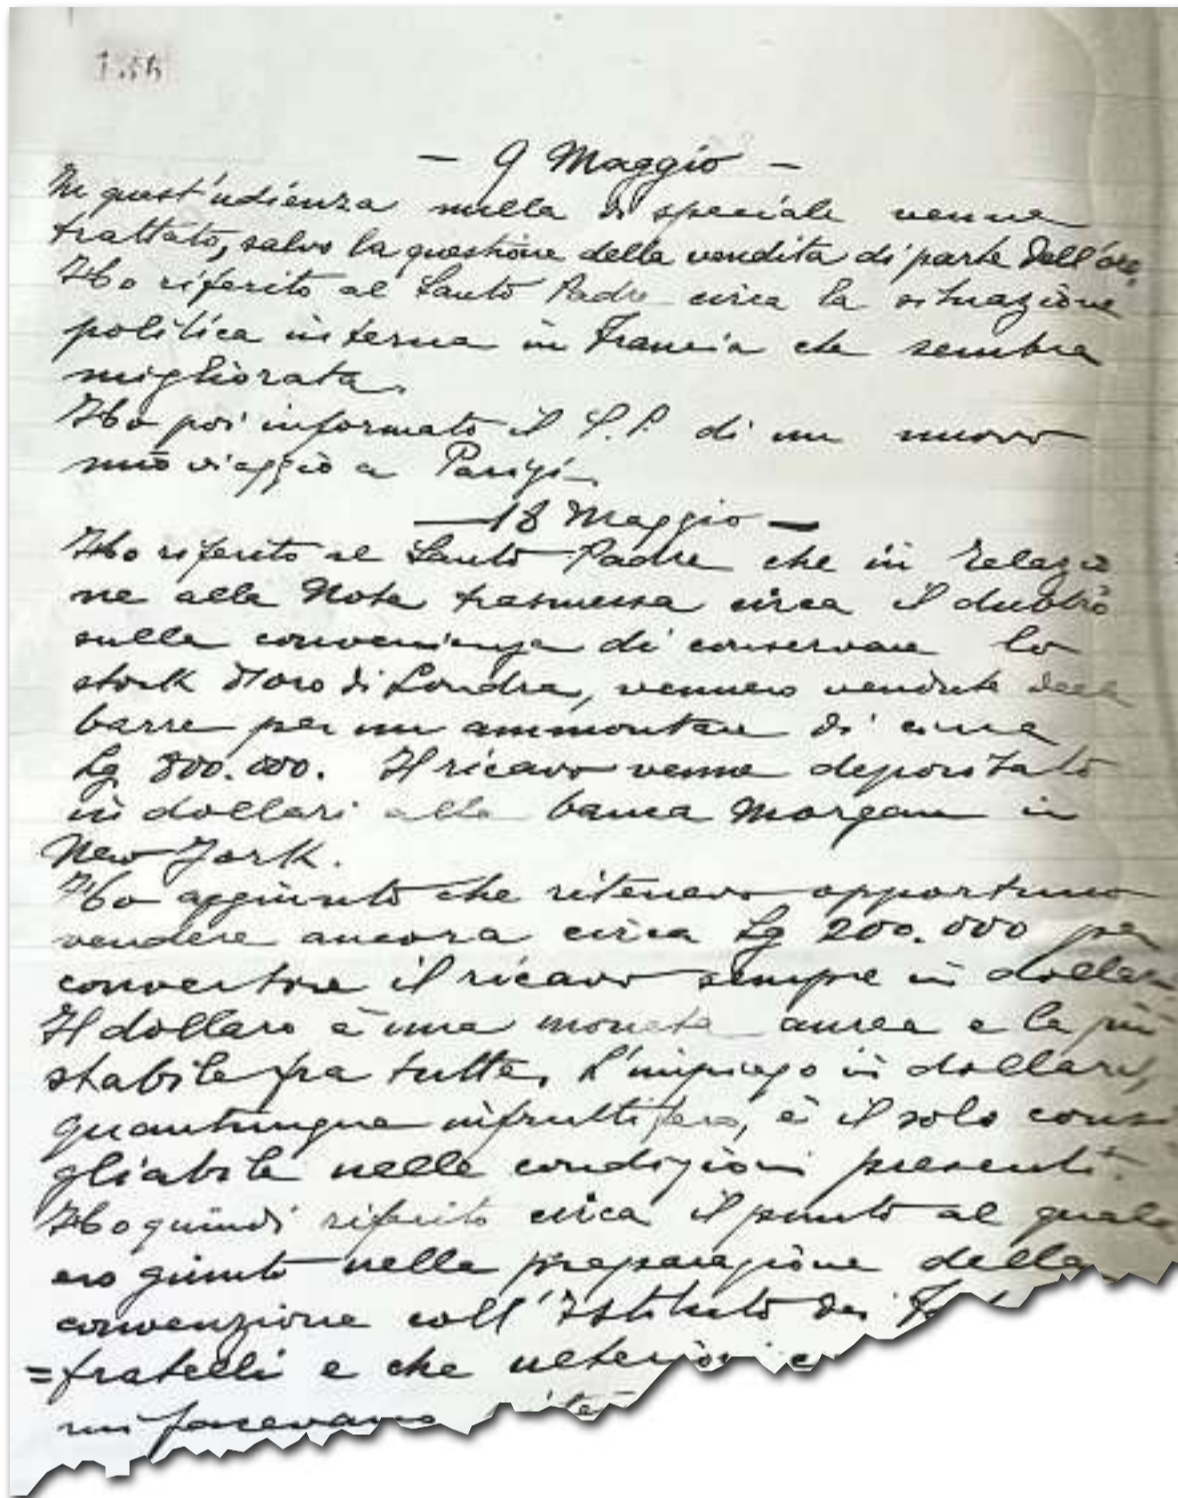 — 9 Maggio —
In quest'udienza nulla di speciale venne
trattato, salvo la questione della vendita di parte dell'oro.
Ho riferito al Santo Padre circa la situazione
politica interna in Francia che sembra
migliorata.
Ho poi informato il S.P. di un nuovo
mio viaggio a Parigi.
— 18 Maggio —
Ho riferito al Santo Padre che in relazio
ne alla Nota trasmessa circa il dubbio
sulla convenienza di conservare lo
stock d'oro di Londra, vennero vendute delle
barre per un ammontare di circa
Lg 800.000. Il ricavo venne depositato
in dollari alla banca Morgan in
New York.
Ho aggiunto che ritenevo opportuno
vendere ancora circa Lg 200.000 per
convertire il ricavo sempre in dollari
Il dollaro è una moneta aurea e la più
stabile fra tutte. L'impiego in dollari,
quantunque infruttifero, è il solo consi
gliabile nelle condizioni presenti.
Ho quindi riferito circa il punto al quale
ero giunto nella preparazione della
convenzione coll'Istituto dei
=fratelli e che ulteriori
mi facevano